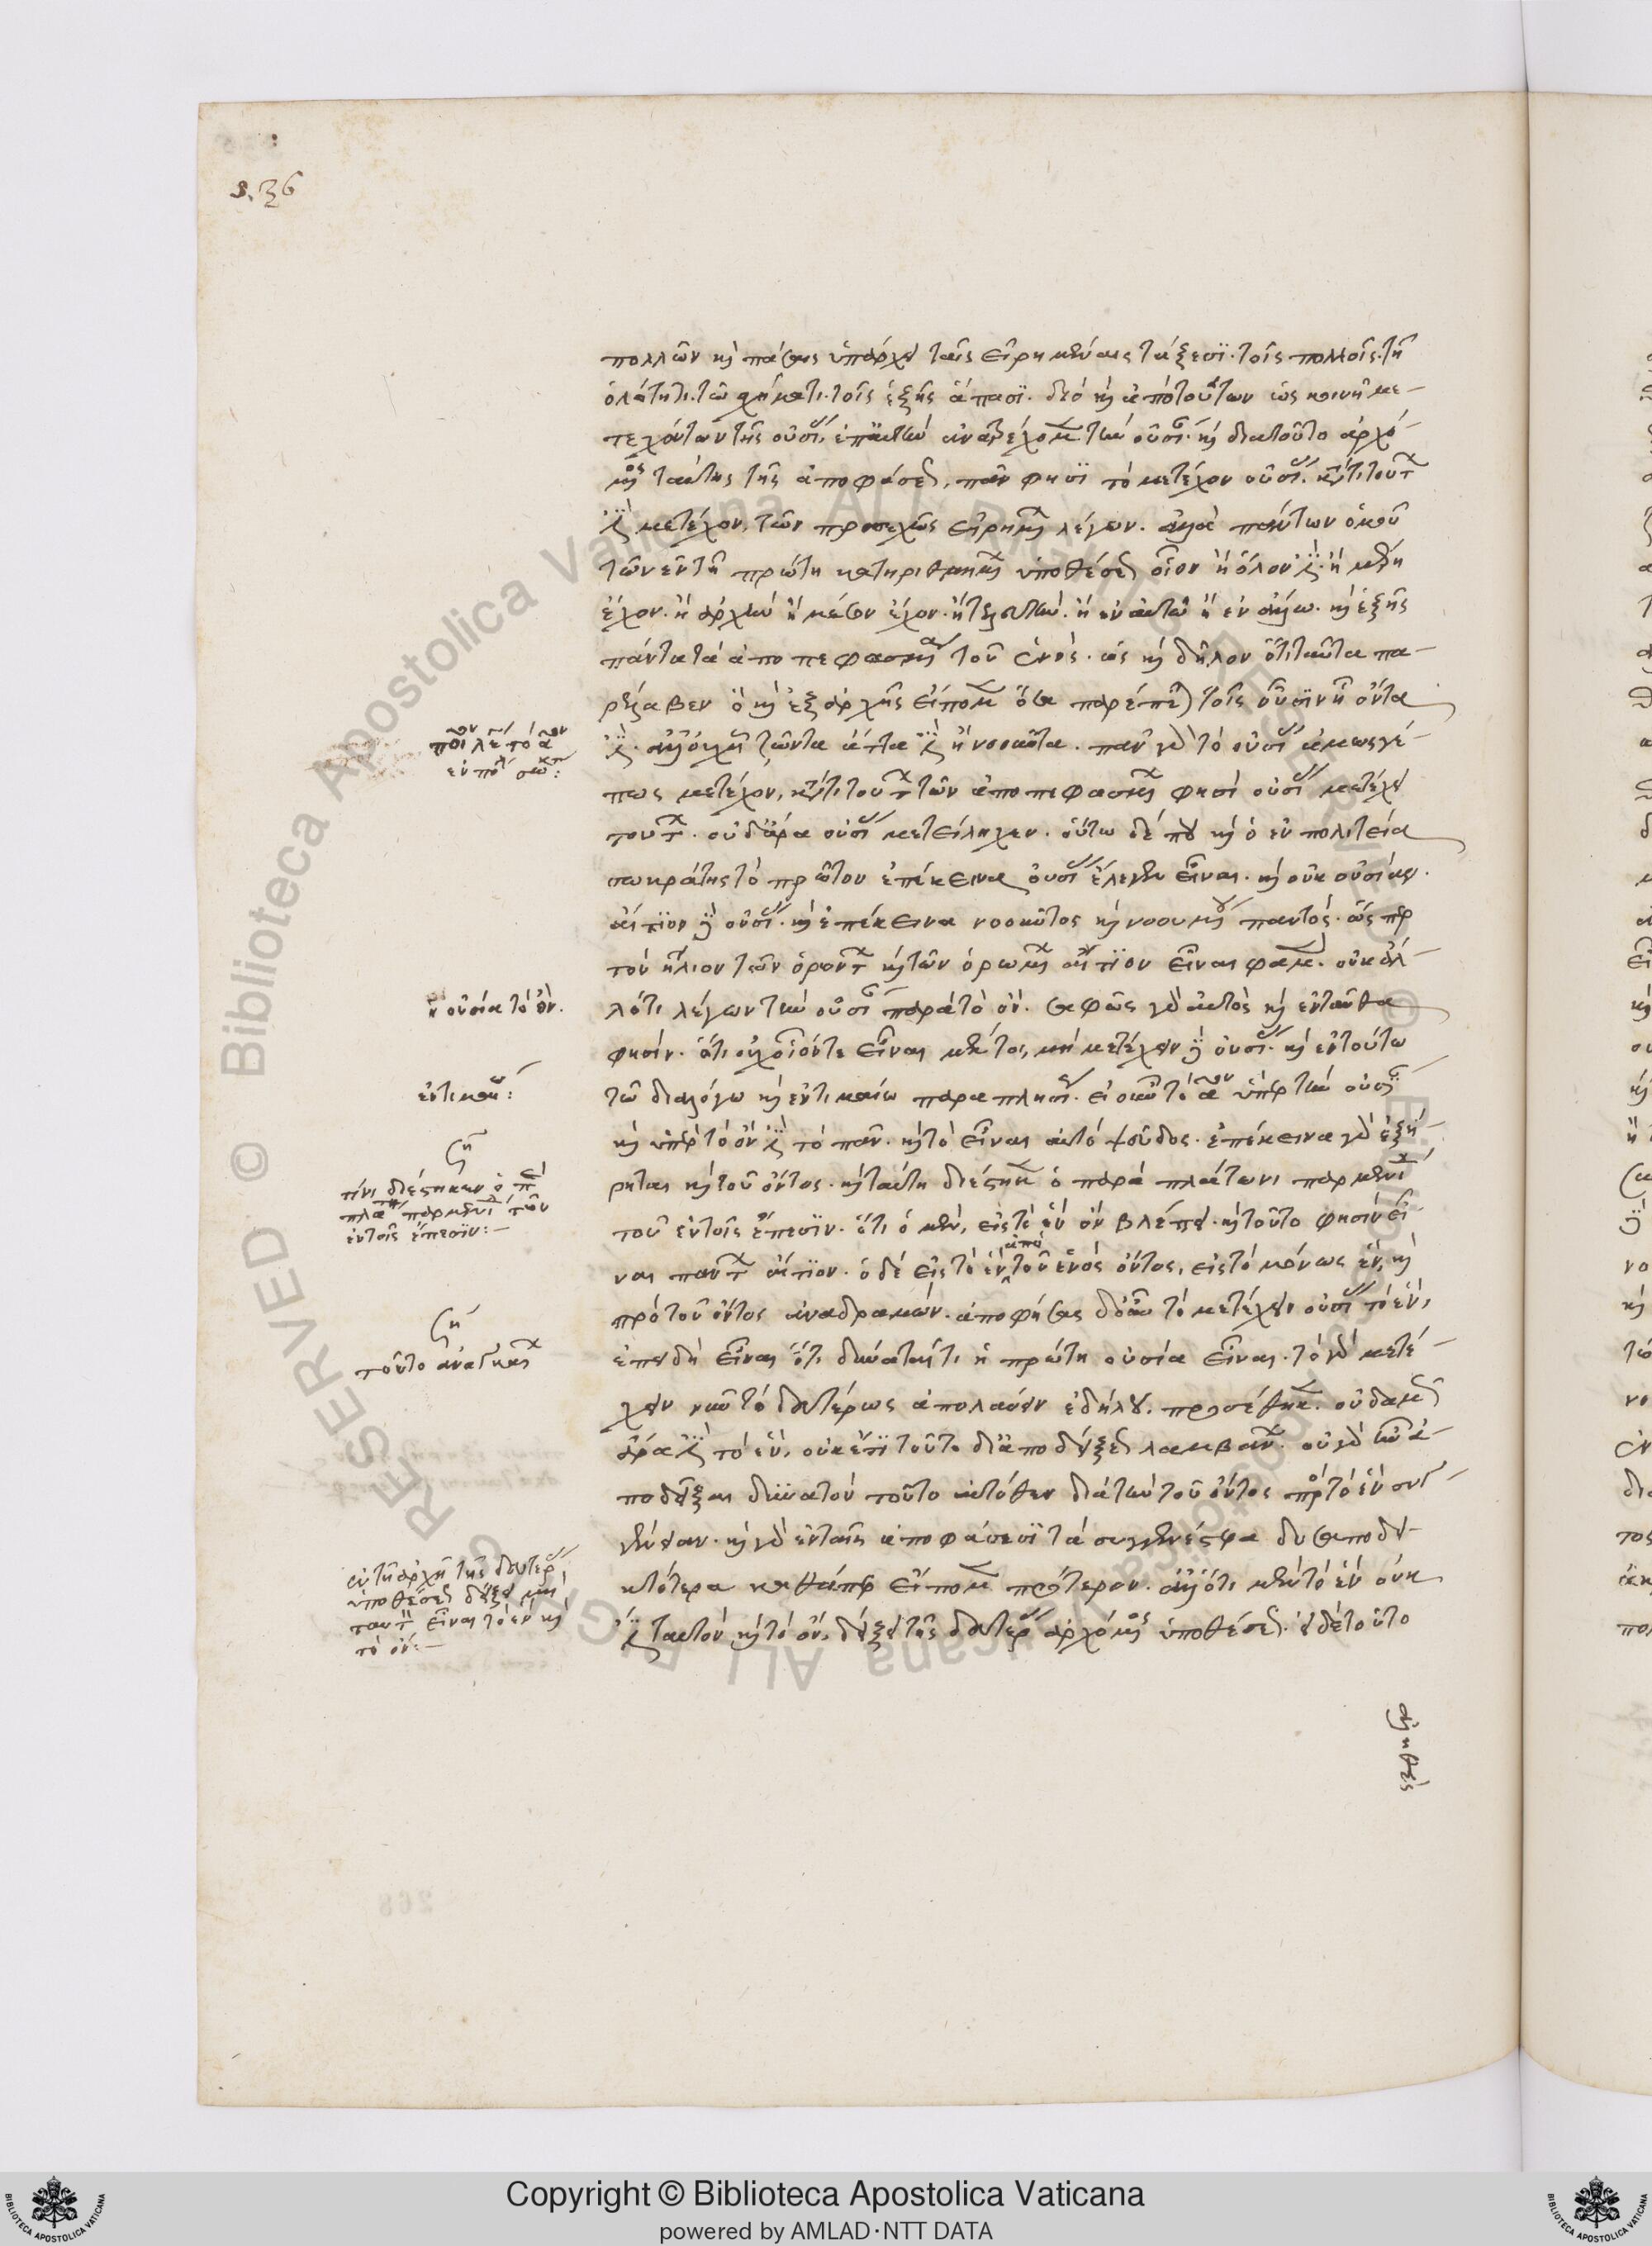 πολλῶν καὶ πάσαις ὑπάρχει ταῖς εἰρημέναις τάξεσι. τοῖς πολλοῖς. τῇ
ὁλότητι. τῷ σχήματι. τοῖς ἑξῆς ἅπασι. διὸ καὶ ἀπὸ τούτων ὡς κοινῇ με-
τεχόντων τῆς οὐσίας, ἐπ' αὐτὴν ἀνατρέχομεν τὴν οὐσίαν. καὶ διατοῦτο ἀρχό-
μενος ταύτης τῆς ἀποφάσεως, πᾶν φησὶ τὸ μετέχον οὐσίας,
ἐστὶ μετέχον, τῶν προσεχῶς εἰρημένων λέγων. ἀλλὰ πάντων ὁμοῦ
τῶν ἐν τῇ πρώτῃ κατηριθμημένων ὑποθέσει οἷον ἢ ὅλον ἐστὶν. ἢ μέρη
ἔχον. ἢ ἀρχὴν ἢ μέσον ἔχον. ἢ τελευτήν. ἢ ἐν αὑτῷ ἢ ἐν ἄλλω. καὶ ἑξῆς
πάντα τὰ ἀποπεφασμένα τοῦ ἑνός. ὡς καὶ δῆλον ὅτι ταῦτα πα-
ρέλαβεν ὃ καὶ ἐξαρχῆς εἴπομεν ὅσα παρέπεται τοῖς οὖσιν ᾗ ὄντα
ἐστίν. ἀλλ' οὐχ ᾗ ζῶντα ἄττα ἐστὶν ἢ νοοῦντα. πᾶν γὰρ τὸ οὐσίας ἁμωσγέ-
πως μετέχον, τῶν ἀποπεφασμένων φησὶ οὐσίας μετέχει
τούτων. οὐδ' ἄρα οὐσίας μετείληχεν. οὕτω δέ που καὶ ὁ ἐν πολιτεία
σωκράτης τὸ πρῶτον ἐπέκεινα οὐσίας ἔλεγεν εἶναι. καὶ οὐκ οὐσίαν.
αἴτιον δὲ οὐσίας. καὶ ἐπέκεινα νοοῦντος καὶ νοουμένου παντός. ὥσπερ
τὸν ἥλιον τῶν ὁρώντων καὶ τῶν ὁρωμένων αἴτιον εἶναι φαμέν. οὐκ ἄλ-
λό τι λέγων τὴν οὐσίαν παρὰ τὸ ὄν. σαφῶς γὰρ αὐτὸς καὶ ἐνταῦθα
φησίν. ὅτι οὐχ οἷόντε εἶναι μέν τοι, μὴ μετέχειν δὲ οὐσίας. καὶ ἐν τούτω
τῷ διαλόγω καὶ ἐν τιμαίω παραπλησίως. εἰ οὖν τὸ πρῶτον ὑπὲρ τὴν οὐσίαν
καὶ ὑπὲρ τὸ ὄν ἐστι τὸ πᾶν. καὶ τὸ εἶναι αὐτὸ ψεῦδος. ἐπέκεινα γὰρ ἐξή-
ρηται καὶ τοῦ ὄντος. καὶ ταύτη διέστηκεν ὁ παρὰ πλάτωνι παρμενίδης
τοῦ ἐν τοῖς ἔπεσιν. ὅτι ὁ μὲν, εἰς τὸ ἓν ὂν βλέπει. καὶ τοῦτο φησὶν εἶ-
ναι πάντων αἴτιον. ὁ δὲ εἰς τὸ ἓν ἀπὸ τοῦ ἑνὸς ὄντος, εἰς τὸ μόνως ἓν, καὶ
πρὸ τοῦ ὄντος ἀναδραμών. ἀποφήσας δ' οὖν τὸ μετέχειν οὐσίας τὸ ἓν,
ἐπειδὴ εἶναι ὅτι δύναταί τι ἡ πρώτη οὐσία εἶναι. τὸ γὰρ μετέ-
χειν δευτέρως ἀπολαύειν ἐδήλου. προσέθηκεν. οὐδαμῶς
ἄρα ἐστὶ τὸ ἕν. οὐκέτι τοῦτο δι' ἀποδείξεως λαμβάνων. οὐ γὰρ ἦν ἀ-
ποδεῖξαι δυνατὸν τοῦτο αὐτόθεν διὰ τὴν τοῦ ὄντος πρὸς τὸ ἓν συγ-
γένειαν. καὶ γὰρ ἐν ταῖς ἀποφάσεσι τὰ συγγενέστερα δυσαποδει-
κτότερα καθάπερ εἴπομεν πρότερον. ἀλλ' ὅτι μὲν τὸ ἓν οὐκ
ἔστι ταυτὸν καὶ τὸ ὄν, δείξει τῆς δευτέρας ἀρχόμενος ὑποθέσεως. εἰ δὲ τοῦτο
ἀληθὲς
ἐν πολ σω:
ἡ οὐσία τὸ ὄν.
ἐν τιμαίω:
ση
τίνι διέστηκεν ὁ π
πλα παρμενι τῶν
ἐν τοῖς ἔπεσιν:-
ση
τοῦτο ἀναγκαῖ
ἐν τῇ ἀρχῇ τῆς δευτέρας
ὑποθέσεως δείξει μὴ
ταυτὸν εἶναι τὸ ἓν καὶ
τὸ ὄν:-
Copyright © Biblioteca Apostolica Vaticana
powered by AMLAD·NTT DATA